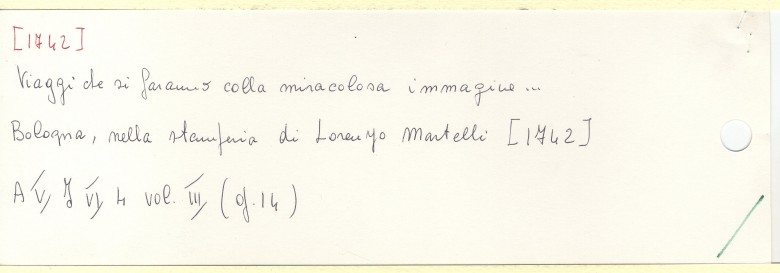 [1742]
Viaggi che si faranno colla miracolosa immagine...
Bologna, nella stamperia di Lorenzo Martelli [1742]
A V, J VI, 4 vol. III, (of. 14)